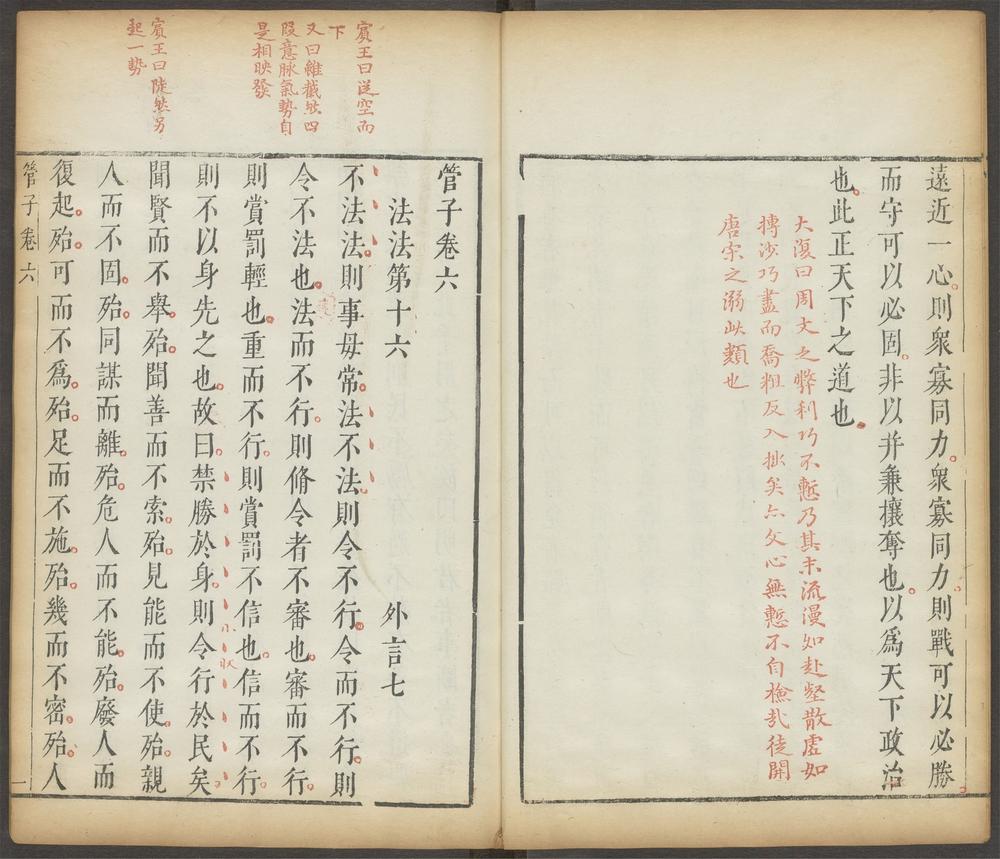 遠近一心則衆寡同力衆寡同力則戰可以必勝
而守可以必固非以并兼攘奪也以爲天下政治
也此正天下之道也
大復曰周文之弊利巧不慙乃其末流漫如赴壑散虛如
摶沙巧盡而喬粗反入掛矣六文心無慙不自檢哉徒開
唐宋之溺此顡也
賓王曰從空而
下
又曰雖截然四
段意脉氣勢自
是相映發
賓王曰陡然另
起一勢
管子卷六
法法第十六 外言七
不法法則事毋常法不法則令不行令而不行則
令不法也法而不行則脩令者不審也審而不行
則賞罰輕也重而不行則賞罰不信也信而不行
則不以身先之也故曰禁勝於身則令行於民矣
小收
聞賢而不舉殆聞善而不索殆見能而不使殆親
人而不固殆同謀而離殆危人而不能殆廢人而
復起殆可而不爲殆足而不施殆幾而不密殆人
管子卷六
一